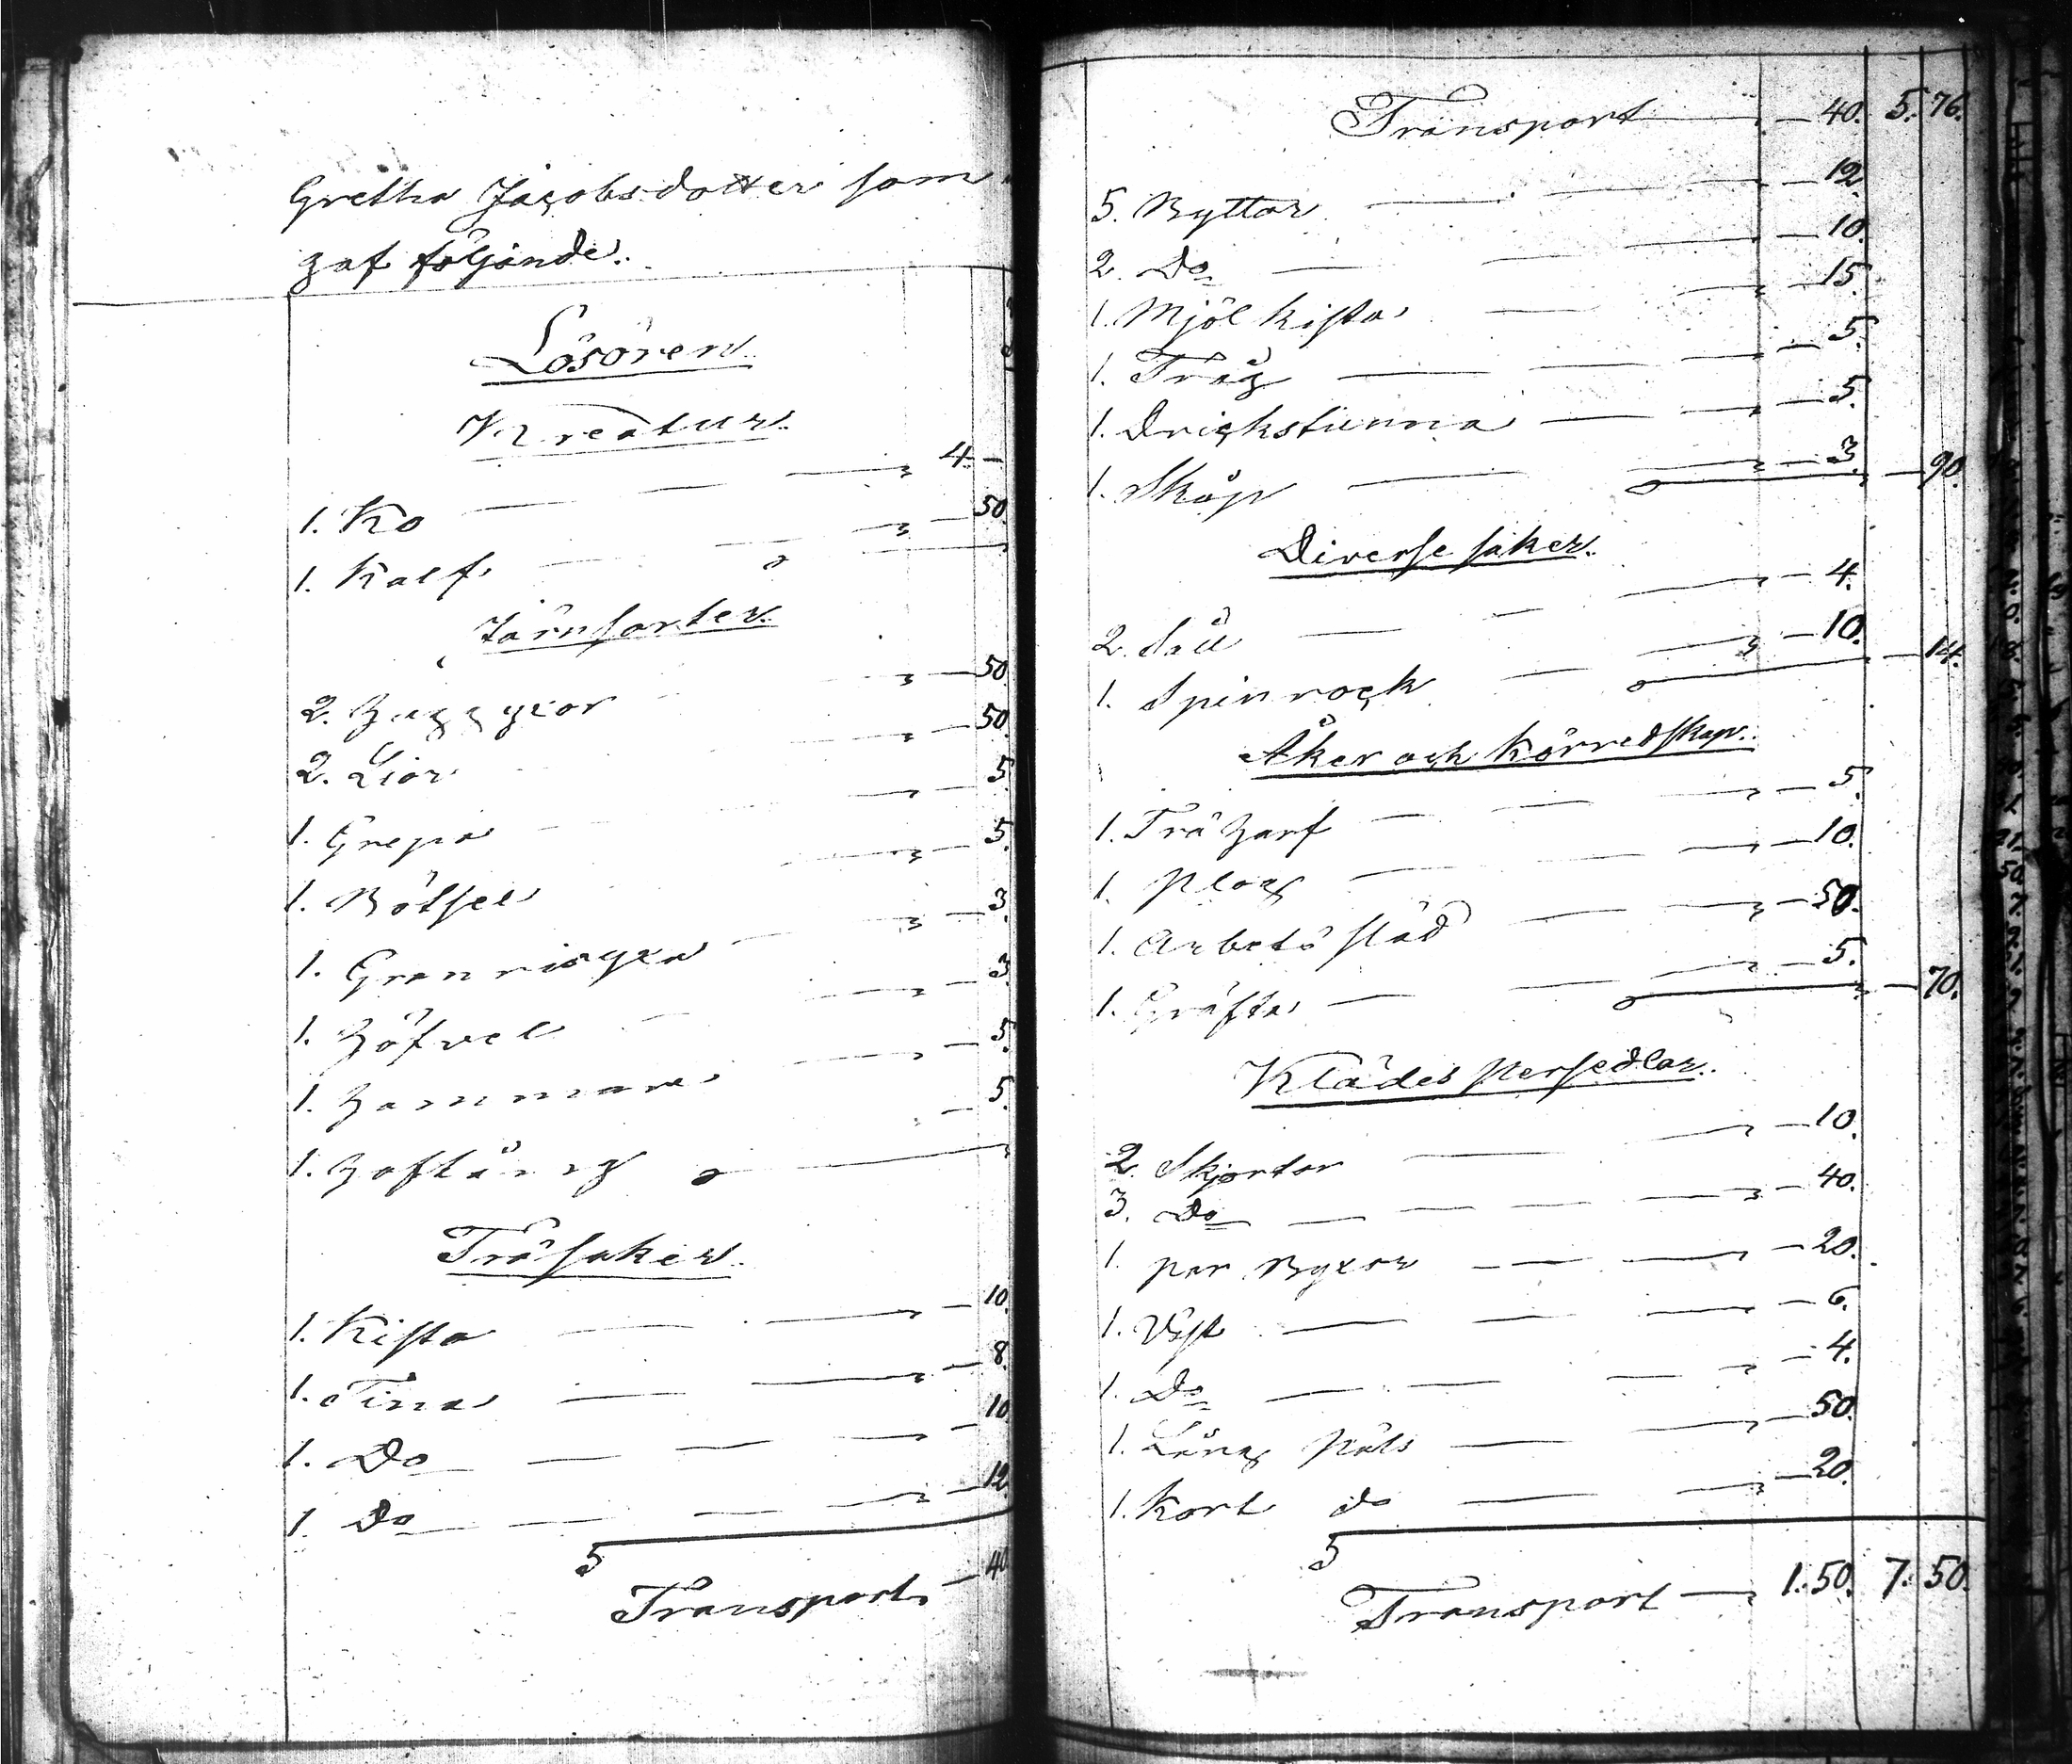 Gretha Jacobsdotter som
gaf följande.
Lösören.
Kreatur.
1. Ko 4. —
1. Kalf — 50.
Järnsorter.
2. Huggyxor — 50.
2. Liar — 50.
1. Grepa — 5.
1. Bötsel — 5.
1. Granrisyxa — 3.
1. Höfvel — 3.
1. Hammare — 5.
1. Hoftång — 5.
Träsaker.
1. Kista — 10.
1. Tina — 8.
1. Do — 10.
1. Do — 12.
Transport — 40.
Transport — 40. 5. 76.
5. Byttor — 12.
2. Do — 10.
1. Mjöl kista — 15.
1. Tråg — 5.
1. Drickstunna — 5.
1. Skåp — 3. — 90.
Diverse saker.
2. Såll — 4.
1. Spinrock — 10. — 14.
Åker och körredskap.
1. Trä harf — 5.
1. Plog — 10.
1. Arbets släd — 50.
1. Gräfta — 5. — 70.
Klädes persedlar.
2. Skjortor — 10.
3. Do — 40.
1. par Byxor — 20.
1. Väst — 6.
1. Do — 4.
1. Lång päls — 50.
1. Kort do — 20.
Transport — 1. 50. 7. 50.